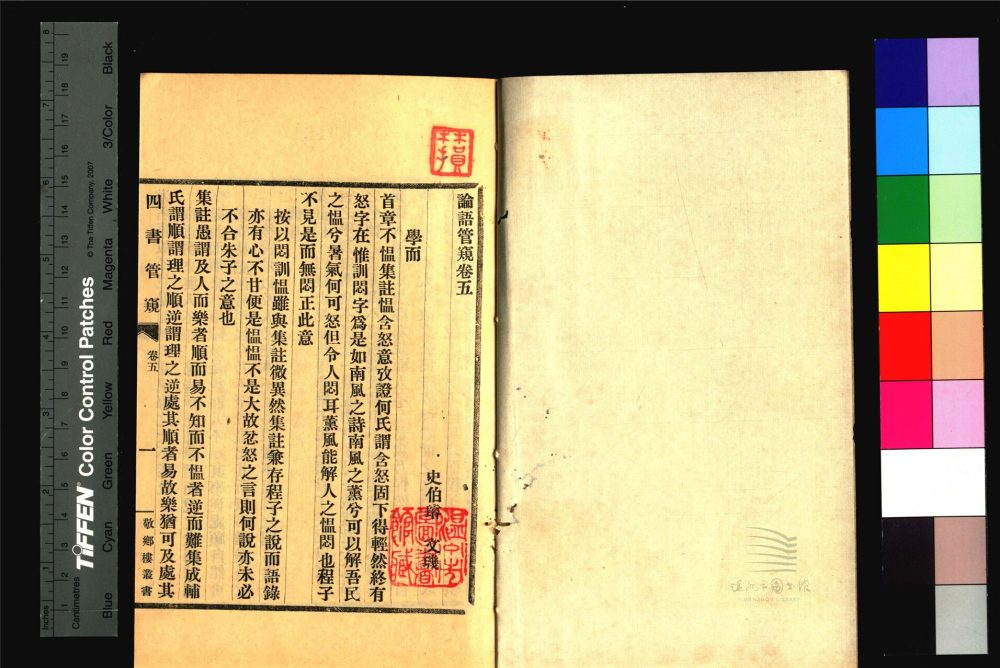 論語管窺卷五
史伯璿 文璣
學而
首章不慍集註慍含怒意攷證何氏謂含怒固下得輕然終有
怒字在惟訓悶字爲是如南風之詩南風之薰兮可以解吾民
之慍兮暑氣何可怒但令人悶耳薰風能解人之慍悶也程子
不見是而無悶正此意
按以悶訓慍雖與集註微異然集註兼存程子之說而語錄
亦有心不甘便是慍慍不是大故忿怒之言則何說亦未必
不合朱子之意也
集註愚謂及人而樂者順而易不知而不慍者逆而難集成輔
氏謂順謂理之順逆謂理之逆處其順者易故樂猶可及處其
四書管窺
卷五
一
敬鄉樓叢書
溫州市圖書館藏
溫州市圖書館
WENZHOU LIBRARY
Inches
Centimetres
TIFFEN® Color Control Patches
© The Tiffen Company, 2007
Blue
Cyan
Green
Yellow
Red
Magenta
White
3/Color
Black
1
2
3
4
5
6
7
8
1
2
3
4
5
6
7
8
9
10
11
12
13
14
15
16
17
18
19